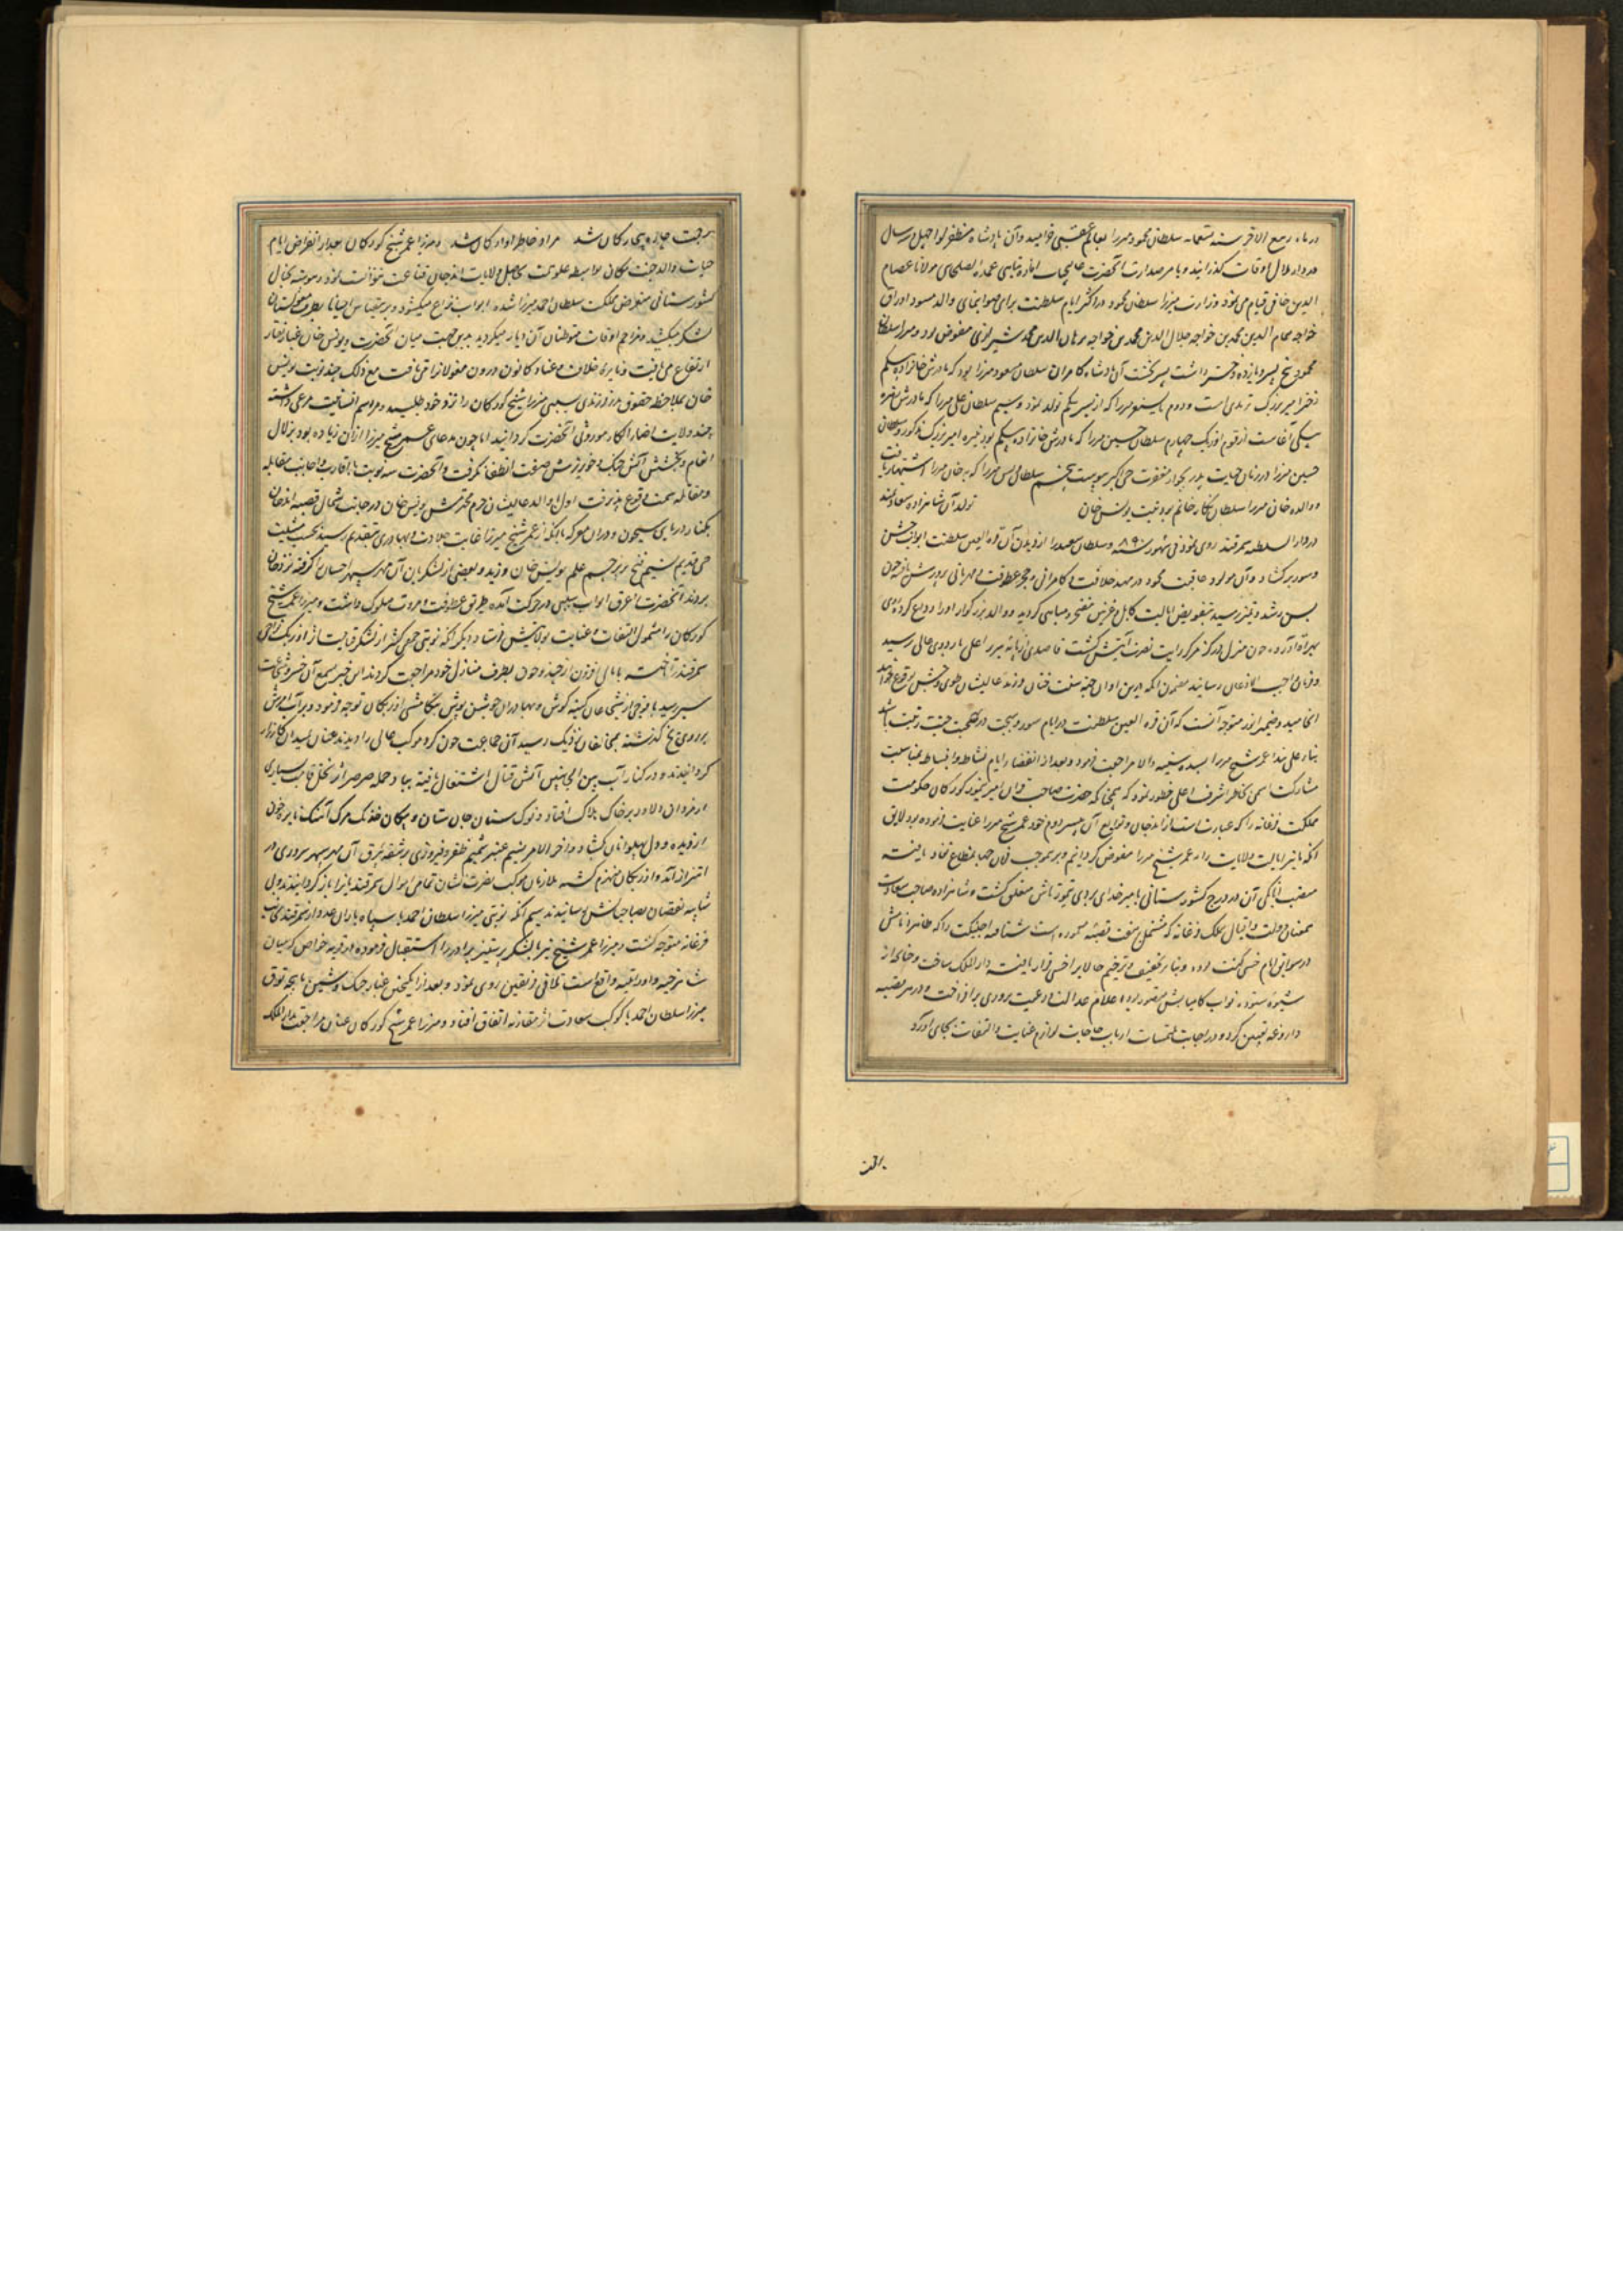 در ماه ربیع الاخر سنه تسعمایه سلطان محمود میرزا بعالم عقبی خرامید وآن پادشاه مظفر لوا چهل و سه سال
در دار ملال اوقات گذرانید و بامر صدارت آنحضرت عالیجناب عمدة الصلحای مولانا عصام
الدین خافی قیام می نمود وزارت میرزا سلطان محمود در اکثر ایام سلطنت برای صوابنمای والد مسود اوراق
خواجه همام الدین محمد بن خواجه جلال الدین محمد بن خواجه برهان الدین محمد شیرازی مفوض بود و میرزا سلطان
محمود پنج پسر و یازده دختر داشت پسر نخست آن پادشاه کامران سلطان مسعود میرزا بود که مادرش خانزاده بیکم
دختر امیر بزرک ترمدی است و دوم بایسنغر میرزا که از پسر بیکم تولد نمود و سیم سلطان علی میرزا که مادرش زهره
بیکی آغاست از قوم اوزبک چهارم سلطان حسین میرزا که مادرش خانزاده بیکم بود نبیره امیر بزرک مذکور و سلطان
حسین میرزا در زمان حیات پدر بجوار مغفرت حی اکبر پیوست پنجم سلطان ویس میرزا که بخان میرزا اشتهار یافت
و والده خان میرزا سلطان نکار خانم بود بنت یونس خان تولد آن شاهزاده سعادتمند
در دار السلطنه سمرقند روی نمود فی شهور سنه ۸۹۰ و سلطان سعید را از دیدن آن قرة العین سلطنت ابواب جشن
و سور برکشاد وآن مولود عاقبت محمود در مهد خلافت و کامرانی و حجر عطوفت و مهربانی پرورش یافته چون
بسن رشد و تمیز رسید بتفویض ایالت کابل و غزنین مفتخر و مباهی کردید و والد بزرکوار اورا وداع کرده روی
براه آورد و چون منزل مرکز رایت نصرت آیتش کشت قاصدی از پایه سریر اعلی باردوی عالی رسید
و فرمان واجب الاذعان رسانید مضمون آنکه درین اوان جهة سنت ختان فرزند عالیشان طوی و جشن بوقوع خواهد
انجامید و ضمیر انور متوجه آنست که آن قرة العین سلطنت در ایام سور و بهجت در صحبت جنت رتبت باشد
بناء علی هذا عمر شیخ میرزا بسده سنیه والا مراجعت نمود و بعد از انقضاء ایام نشاط و انبساط بمناسبت
مشارکت اسمی بخاطر اشرف اعلی خطور نمود که همچنانکه حضرت صاحب قران امیر تیمور کورکان حکومت
مملکت فرغانه را که عبارت است از اندجان و توابع آن بپسر دوم خود عمر شیخ میرزا عنایت فرموده بود لایق
آنکه ما نیز ایالت آن ولایت را به عمر شیخ میرزا مفوض کردانیم و بر موجب فرمان جهانمطاع نفاذ یافته
منصب اتابکی آن در درج کشورستانی بامیر خدای بردی تیمورتاش متعلق کشت و شاهزاده صاحب سعادت
بعنان دولت و اقبال بملک فرغانه که مشتمل بر هفت قصبه معموره است شتافته اخسیکت را که ظاهرا نامش
در سوابق ایام خسی کنت بوده و بنا بر تخفیف و ترخیم حالا بر اخسی قرار یافته دار الملک ساخت و چنانچه از
شیوه ستوده نواب کامیابش متصور بود اعلام عدالت و رعیت پروری برافراخت و در هر قصبه
داروغه تعیین کرد و در اجابت ملتمسات ارباب حاجات لوازم عنایت و التفات بجای آورد
حیات والد جنت مکان بواسطه علو همت بحاصل ولایات اندجان قناعت نتوانست نمود و پیوسته بخیال
کشورستانی متعرض مملکت سلطان احمد میرزا شده ابواب نزاع میکشود و بر همین قیاس احیانا بطرف مغولستان
لشکر میکشید و مزاحم اوقات متوطنان آن دیار میکردید بدین جهت میان آنحضرت و یونس خان غبار نقار
ارتفاع می یافت و نایره خلاف و عناد کانون درون مغولانرا می تافت مع ذلک چند نوبت یونس
خان بملاحظه حقوق فرزندی سببی میرزا عمر شیخ کورکان را نزد خود طلبید و مراسم انسانیت مرعی داشته
چند ولایت اضافه الکاء موروثی آنحضرت کردانید اما چون مدعای عمر شیخ میرزا از آن زیاده بود بزلال
انعام و بخشش آتش جنک و خونریزش صفت انطفا نکرفت و آنحضرت سه نوبت با اقارب و اجانب مقابله
و مقاتله سمت وقوع پذیرفت اول با والد عالیشان حرم محترمش یونس خان در جانب شمال قصبه اندجان
بکنار دریای سیحون و در آن معرکه با آنکه از عمر شیخ میرزا غایت جلادت و بهادری بتقدیم رسید بحسب مشیت
حی قدیم نسیم فتح بر پرچم علم یونس خان وزید و بعضی از لشکریان آن مهر سپهر احسان را کرفته نزد خان
بردند آنحضرت را عرق ابوت سببی در حرکت آمده بطریق عطوفت و مروت سلوک داشت و میرزا عمر شیخ
کورکان را مشمول التفات و عنایت بولایتش فرستاد دیکر آنکه نوبتی جمعی کثیر از لشکر قیامت اثر اوزبک نواحی
سمرقند تاخته با مالی افزون از چند و چون بطرف منازل خود مراجعت کردند این خبر بسمع آن خسرو شجاعت
سیر رسید با فوجی از شجاعان کینه کوش و بهادران جوشن پوش بتکامشی اوزبکان توجه فرمود و بر آب ارس
بر روی یخ کذشته بمخالفان نزدیک رسید آن جماعت چون کرد موکب عالی را دیدند عنان بمیدان کارزار
کردانیدند و در کنار آب بین الجانبین آتش قتال اشتعال یافته بباد حمله صرصر اثر نخل قامت بسیاری
از مردان دلاور بر خاک هلاک افتاد و نوک سنان جان ستان و پیکان خدنک مرک آهنک نایره خون
از دیده و دل پهلوانان کشاد و آخر الامر نسیم عنبر شمیم ظفر و فیروزی بر شقه بیرق آن مهر سپهر سروری در
اهتزاز آمد و اوزبکان منهزم کشته ملازمان موکب نصرت نشان تمامی اموال سمرقندیانرا باز کردانیدند و بی
شایبه نقصان بصاحبانش رسانیدند سیم آنکه نوبتی میرزا سلطان احمد با سپاه باران عدد از سمرقند بجانب
فرغانه متوجه کشت و میرزا عمر شیخ نیز با لشکر پر ستیز برادر را استقبال فرموده در قریه خواص که میان
شاهرخیه و اوراتپه واقع است تلاقی فریقین روی نمود و بعد از انکیختن غبار جنک و شین
میرزا سلطان احمد با کوکب سعادت اثر مقارنه اتفاق افتاد و میرزا عمر شیخ کورکان عنان مراجعت بدار الملک